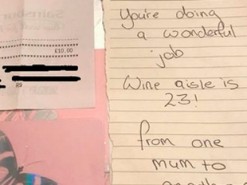 £10.00
You're doing
a wonderful
job
Wine aisle is
23!
from one
mum to